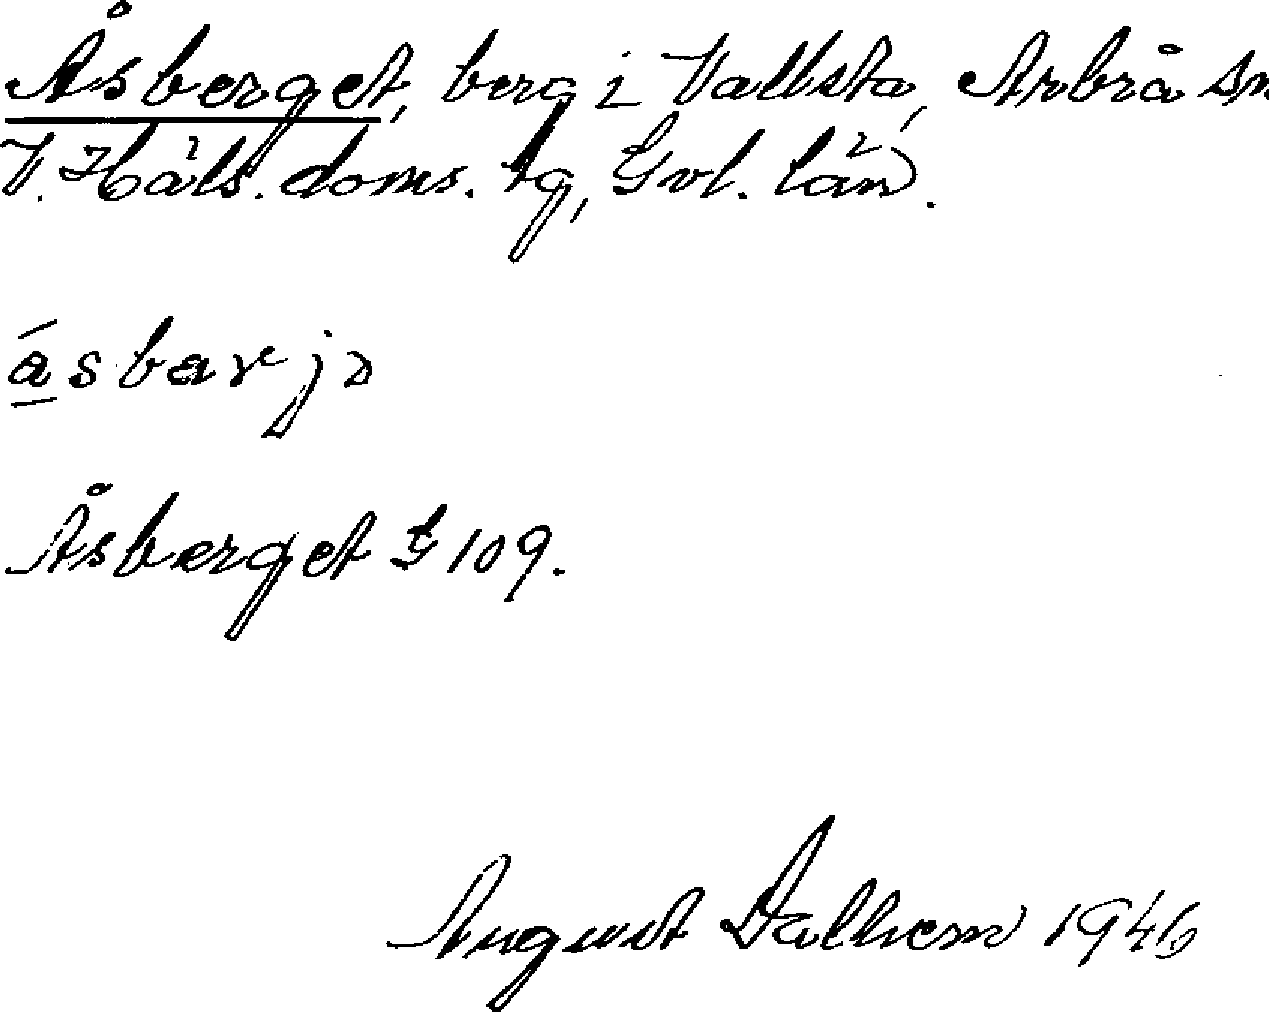 Åsberget, berg i Vallsta, Arbrå sn
V. Häls. doms. tg, Gvl. län.
Åsberget G 109.
August Dalhem 1946